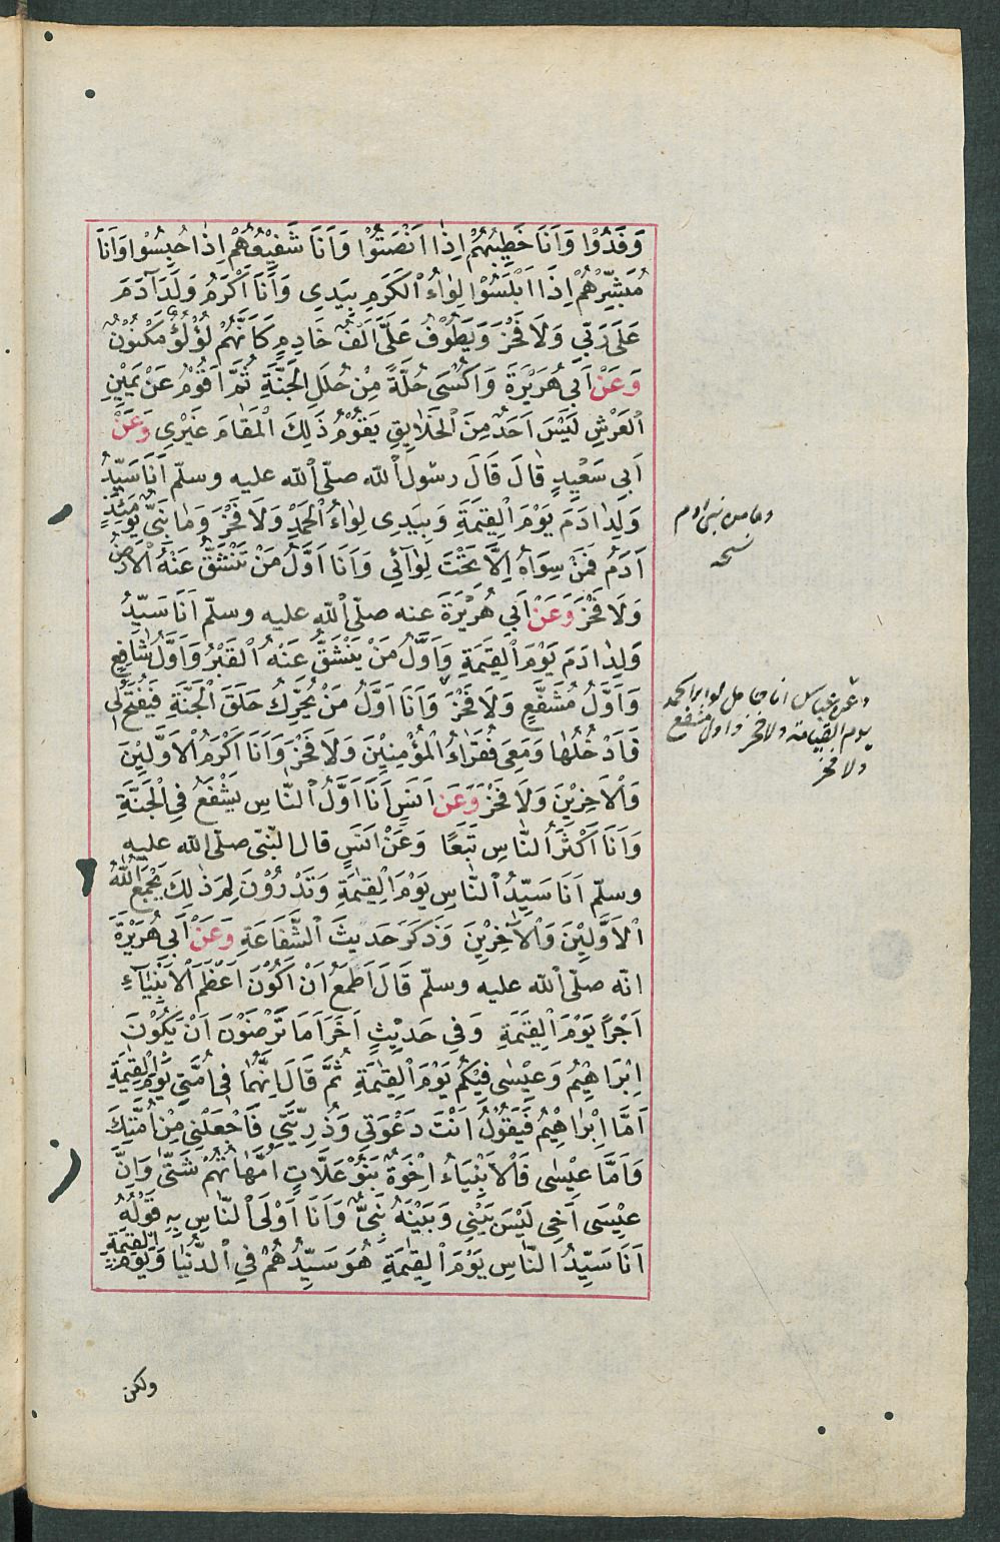 وَفَدُوْا وَاَنَا خَطِيبُهُمْ اِذٰا اَنْصَتُوْا وَاَنَا شَفِيْعُهُمْ اِذٰا حُبِسُوا وَاَنَا
مُبَشِّرُهُمْ اِذَا اَبْلَسُوْا لِوٰاءُ الْكَرَمِ بِيَدِى وَاَنَا اَكْرَمُ وَلَدِ اٰدَمَ
عَلَى رَبِّى وَلَا فَخْرَ وَيَطُوْفُ عَلَىَّ اَلْفُ خَادِمٍ كَاَنَّهُمْ لُؤْلُؤٌ مَكْنُوْنٌ
وَعَنْ اَبِى هُرَيْرَةَ وَاُكْسَى حُلَّةً مِنْ حُلَلِ الْجَنَّةِ ثُمَّ اَقُوْمُ عَنْ يَمِيْنِ
الْعَرْشِ لَيْسَ اَحَدٌ مِنَ الْخَلَايِقِ يَقُوْمُ ذَلِكَ الْمَقٰامَ غَيْرِى وَعَنْ
اَبِى سَعِيْدٍ قٰالَ قَالَ رسول الله صلّى الله عليه وسلّم اَنَا سَيِّدُ
وَلِدِ اٰدَمَ يَوْمَ الْقِيٰمَةِ وَبِيَدِى لِوٰاءُ الْحَمْدِ وَلَا فَخْرَ وَمٰا نَبِىٌّ يَوْمَئِذٍ
اٰدَمُ فَمَنْ سِوَاهُ اِلَّا تَحْتَ لِوٰآئِى وَاَنَا اَوَّلُ مَنْ تَنْشَقُّ عَنْهُ الْاَرْضُ
وَلَا فَخْرَ وَعَنْ اَبِى هُرَيْرَةَ عنه صلّى الله عليه وسلّم اَنَا سَيِّدُ
وَلِدِ اٰدَمَ يَوْمَ الْقِيٰمَةِ وَاَوَّلُ مَنْ يَنْشَقُّ عَنْهُ الْقَبْرُ وَاَوَّلُ شٰافِعٍ
وَاَوَّلُ مُشَفَّعٍ وَلَا فَخْرَ وَاَنَا اَوَّلُ مَنْ يُحَرِّكُ حَلَقَ الْجَنَّةِ فَيُفْتَحُ لِى
فَاَدْخُلُهٰا وَمَعِى فُقَرٰاءُ الْمُؤْمِنِيْنَ وَلَا فَخْرَ وَاَنَا اَكْرَمُ الْاَوَّلِيْنَ
وَالْاٰخِرِيْنَ وَلَا فَخْرَ وَعَن اَنَسٍ اَنَا اَوَّلُ النّٰاسِ يَشْفَعُ فِى الْجَنَّةِ
وَاَنَا اَكْثَرُ النّٰاسِ تَبَعًا وَعَنْ اَنَسٍ قال النّبىّ صلّى الله عليه
وسلّم اَنَا سَيِّدُ النّٰاسِ يَوْمَ الْقِيٰمَةِ وَتَدْرُوْنَ لِمَ ذٰلِكَ يَجْمَعُ اللّٰهُ
الْاَوَّلِيْنَ وَالْاٰخِرِيْنَ وَذَكَرَ حَدِيثَ الشَّفَاعَةِ وَعَنْ اَبِى هُرَيْرَةَ
انّه صلّى الله عليه وسلّم قَالَ اَطْمَعُ اَنْ اَكُوْنَ اَعْظَمَ الْاَنْبِيَآءِ
اَجْرًا يَوْمَ الْقِيٰمَةِ وَفِى حَدِيْثٍ اٰخَرَ اَمَا تَرْضَوْنَ اَنْ يَكُوْنَ
اِبْرَاهِيْمُ وَعِيْسٰى فِيْكُمْ يَوْمَ الْقِيٰمَةِ ثُمَّ قَالَ اِنَّهُمٰا فِى اُمَّتِى يَوْمَ الْقِيٰمَةِ
اَمَّا اِبْرٰاهِيْمُ فَيَقُوْلُ اَنْتَ دَعْوَتِى وَذُرِّيَّتِى فَاجْعَلْنِى مِنْ اُمَّتِكَ
وَاَمَّا عِيْسٰى فَالْاَنْبِيَاءُ اِخْوَةٌ بَنُوْ عَلَّاتٍ اُمَّهٰاتُهُمْ شَتّٰى وَاِنَّ
عِيْسَى اَخِى لَيْسَ بَيْنِى وَبَيْنَهُ نَبِىٌّ وَاَنَا اَوْلَى النّٰاسِ بِهِ قَوْلُهُ
اَنَا سَيِّدُ النّٰاسِ يَوْمَ الْقِيٰمَةِ هُوَ سَيِّدُهُمْ فِى الدُّنْيٰا وَيَوْمَ الْقِيٰمَةِ
ولكن
وما من نبى ادم
نسخه
وعن ابن عباس انا حامل لواء الحمد
يوم القيامة ولا فخر واول مشفع
ولا فخر